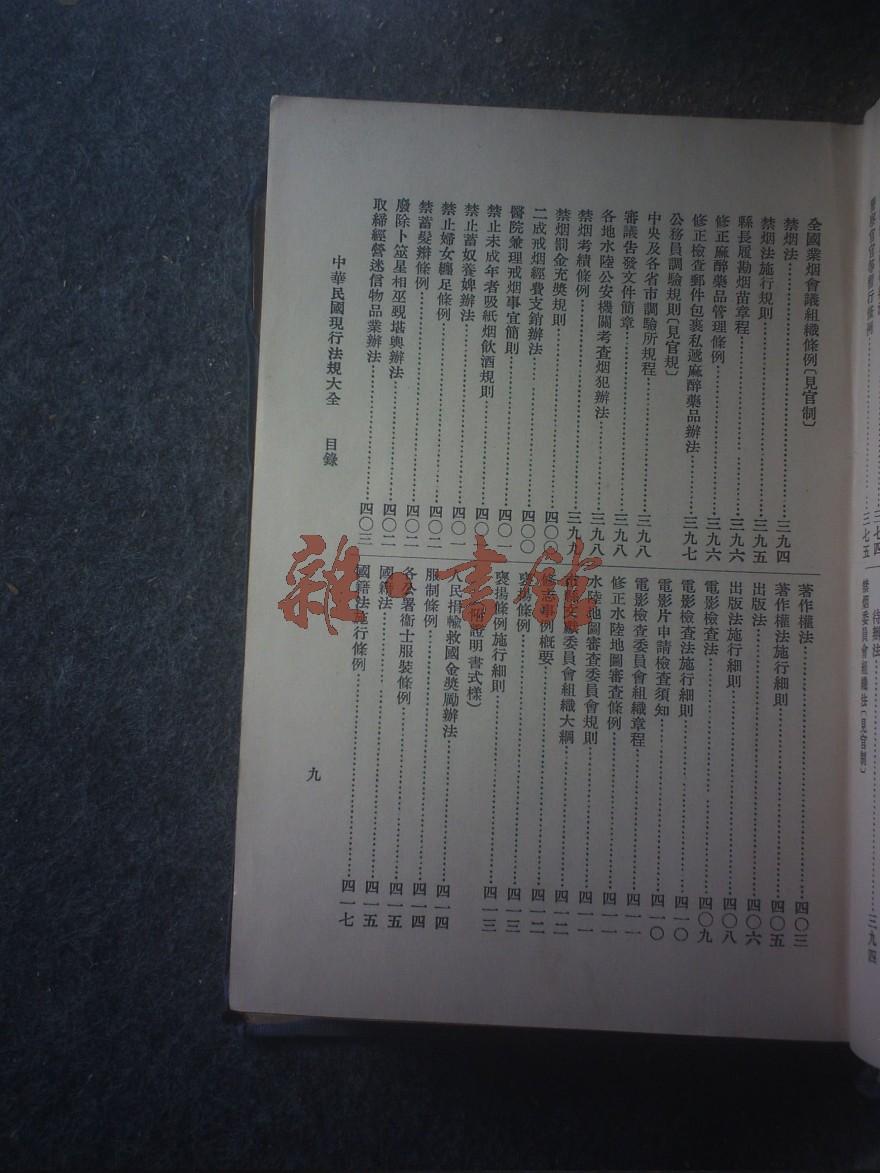 全國禁烟會議組織條例〔見官制〕
禁烟法……三九四
禁烟法施行規則……三九五
縣長履勘烟苗章程……三九六
修正麻醉藥品管理條例……三九六
修正檢查郵件包裹私遞麻醉藥品辦法……三九七
公務員調驗規則〔見官規〕
中央及各省市調驗所規程……三九八
審議告發文件簡章……三九八
各地水陸公安機關考查烟犯辦法……三九八
禁烟考績條例……三九九
禁烟罰金充獎規則……四〇〇
二成戒烟經費支銷辦法……四〇〇
醫院兼理戒烟事宜簡則……四〇一
禁止未成年者吸紙烟飲酒規則……四〇
禁止蓄奴養婢辦法……四〇一
禁止婦女纏足條例……四〇二
禁蓄髮辮條例……四〇二
廢除卜筮星相巫覡堪輿辦法……四〇二
取締經營迷信物品業辦法……四〇三
著作權法……四〇三
著作權法施行細則……四〇五
出版法……四〇六
出版法施行細則……四〇八
電影檢查法……四〇九
電影檢查法施行細則……四一〇
電影片申請檢查須知……四一〇
電影檢查委員會組織章程……四一一
修正水陸地圖審查條例……四一一
水陸地圖審查委員會規則……四一一
市縣文獻委員會組織大綱……四一二
修志事例概要……四一二
褒揚條例……四一三
褒揚條例施行細則……四一三
附證明書式樣）
人民捐輸救國金獎勵辦法……四一四
服制條例……四一四
各公署衞士服裝條例……四一五
國籍法……四一五
國籍法施行條例……四一七
中華民國現行法規大全　目錄
九
三七四
三七五
待辦法
禁烟委員會組織法〔見官制〕……三九四
雜·書館